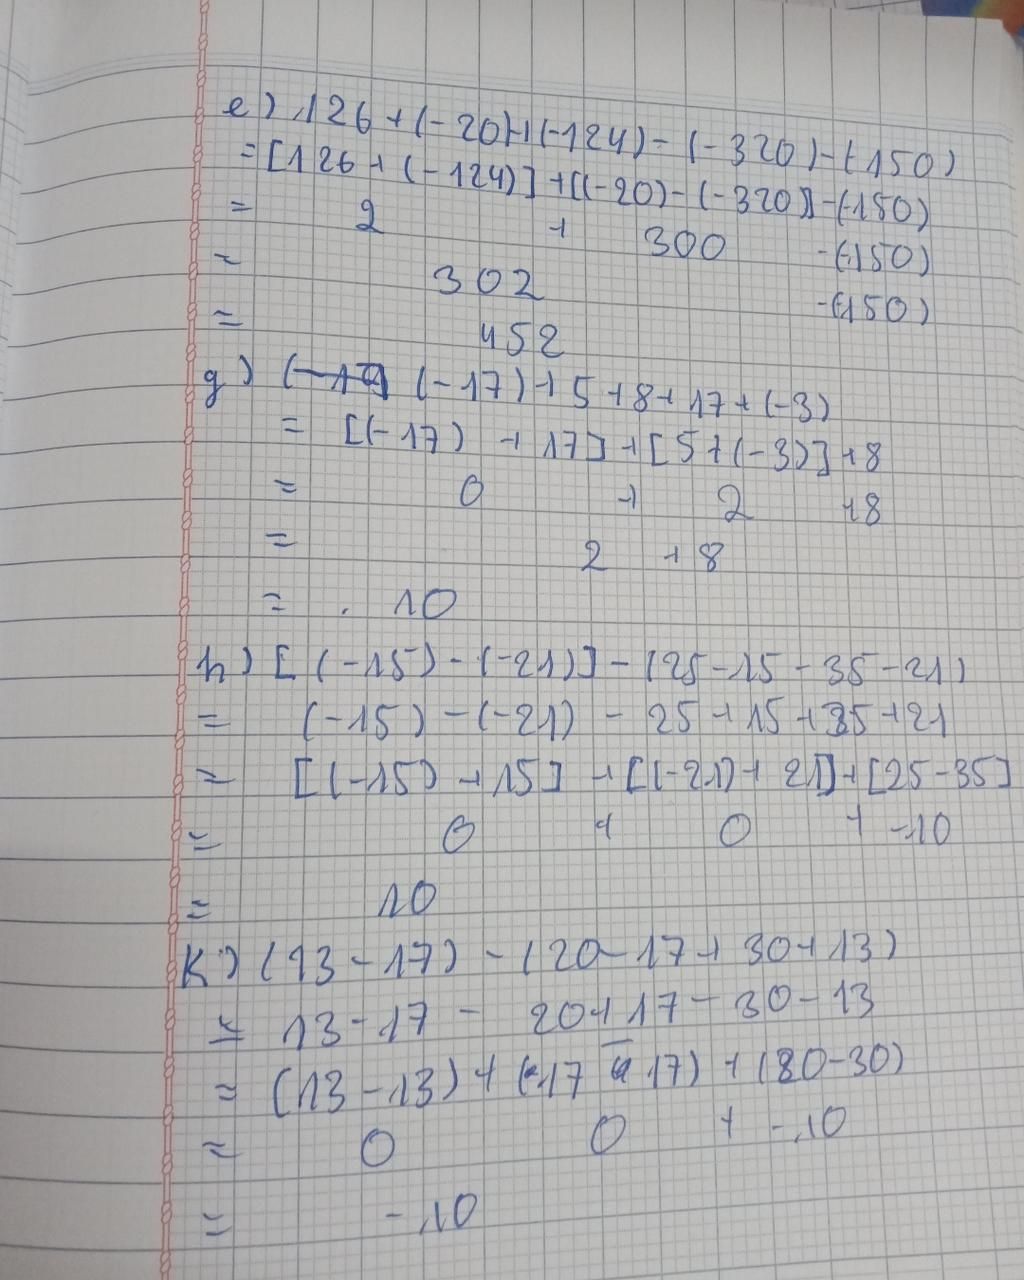 e) 126 + (-20) + (-124) - (-320) - (-150)
= [126 + (-124)] + [(-20) - (-320)] - (-150)
= 2 + 300 - (-150)
= 302 - (-150)
= 452
g) (-17) + 5 + 8 + 17 + (-3)
= [(-17) + 17] + [5 + (-3)] + 8
= 0 + 2 + 8
= 2 + 8
= 10
h) [(-15) - (-21)] - (25 - 15 - 35 - 21)
= (-15) - (-21) - 25 + 15 + 35 + 21
= [(-15) + 15] + [(-21) + 21] + [25 - 35]
= 0 + 0 + -10
= 10
K) (13 - 17) - (20 - 17 + 30 + 13)
= 13 - 17 - 20 + 17 - 30 - 13
= (13 - 13) + (-17 17) + (20 - 30)
= 0 0 + -10
= -10